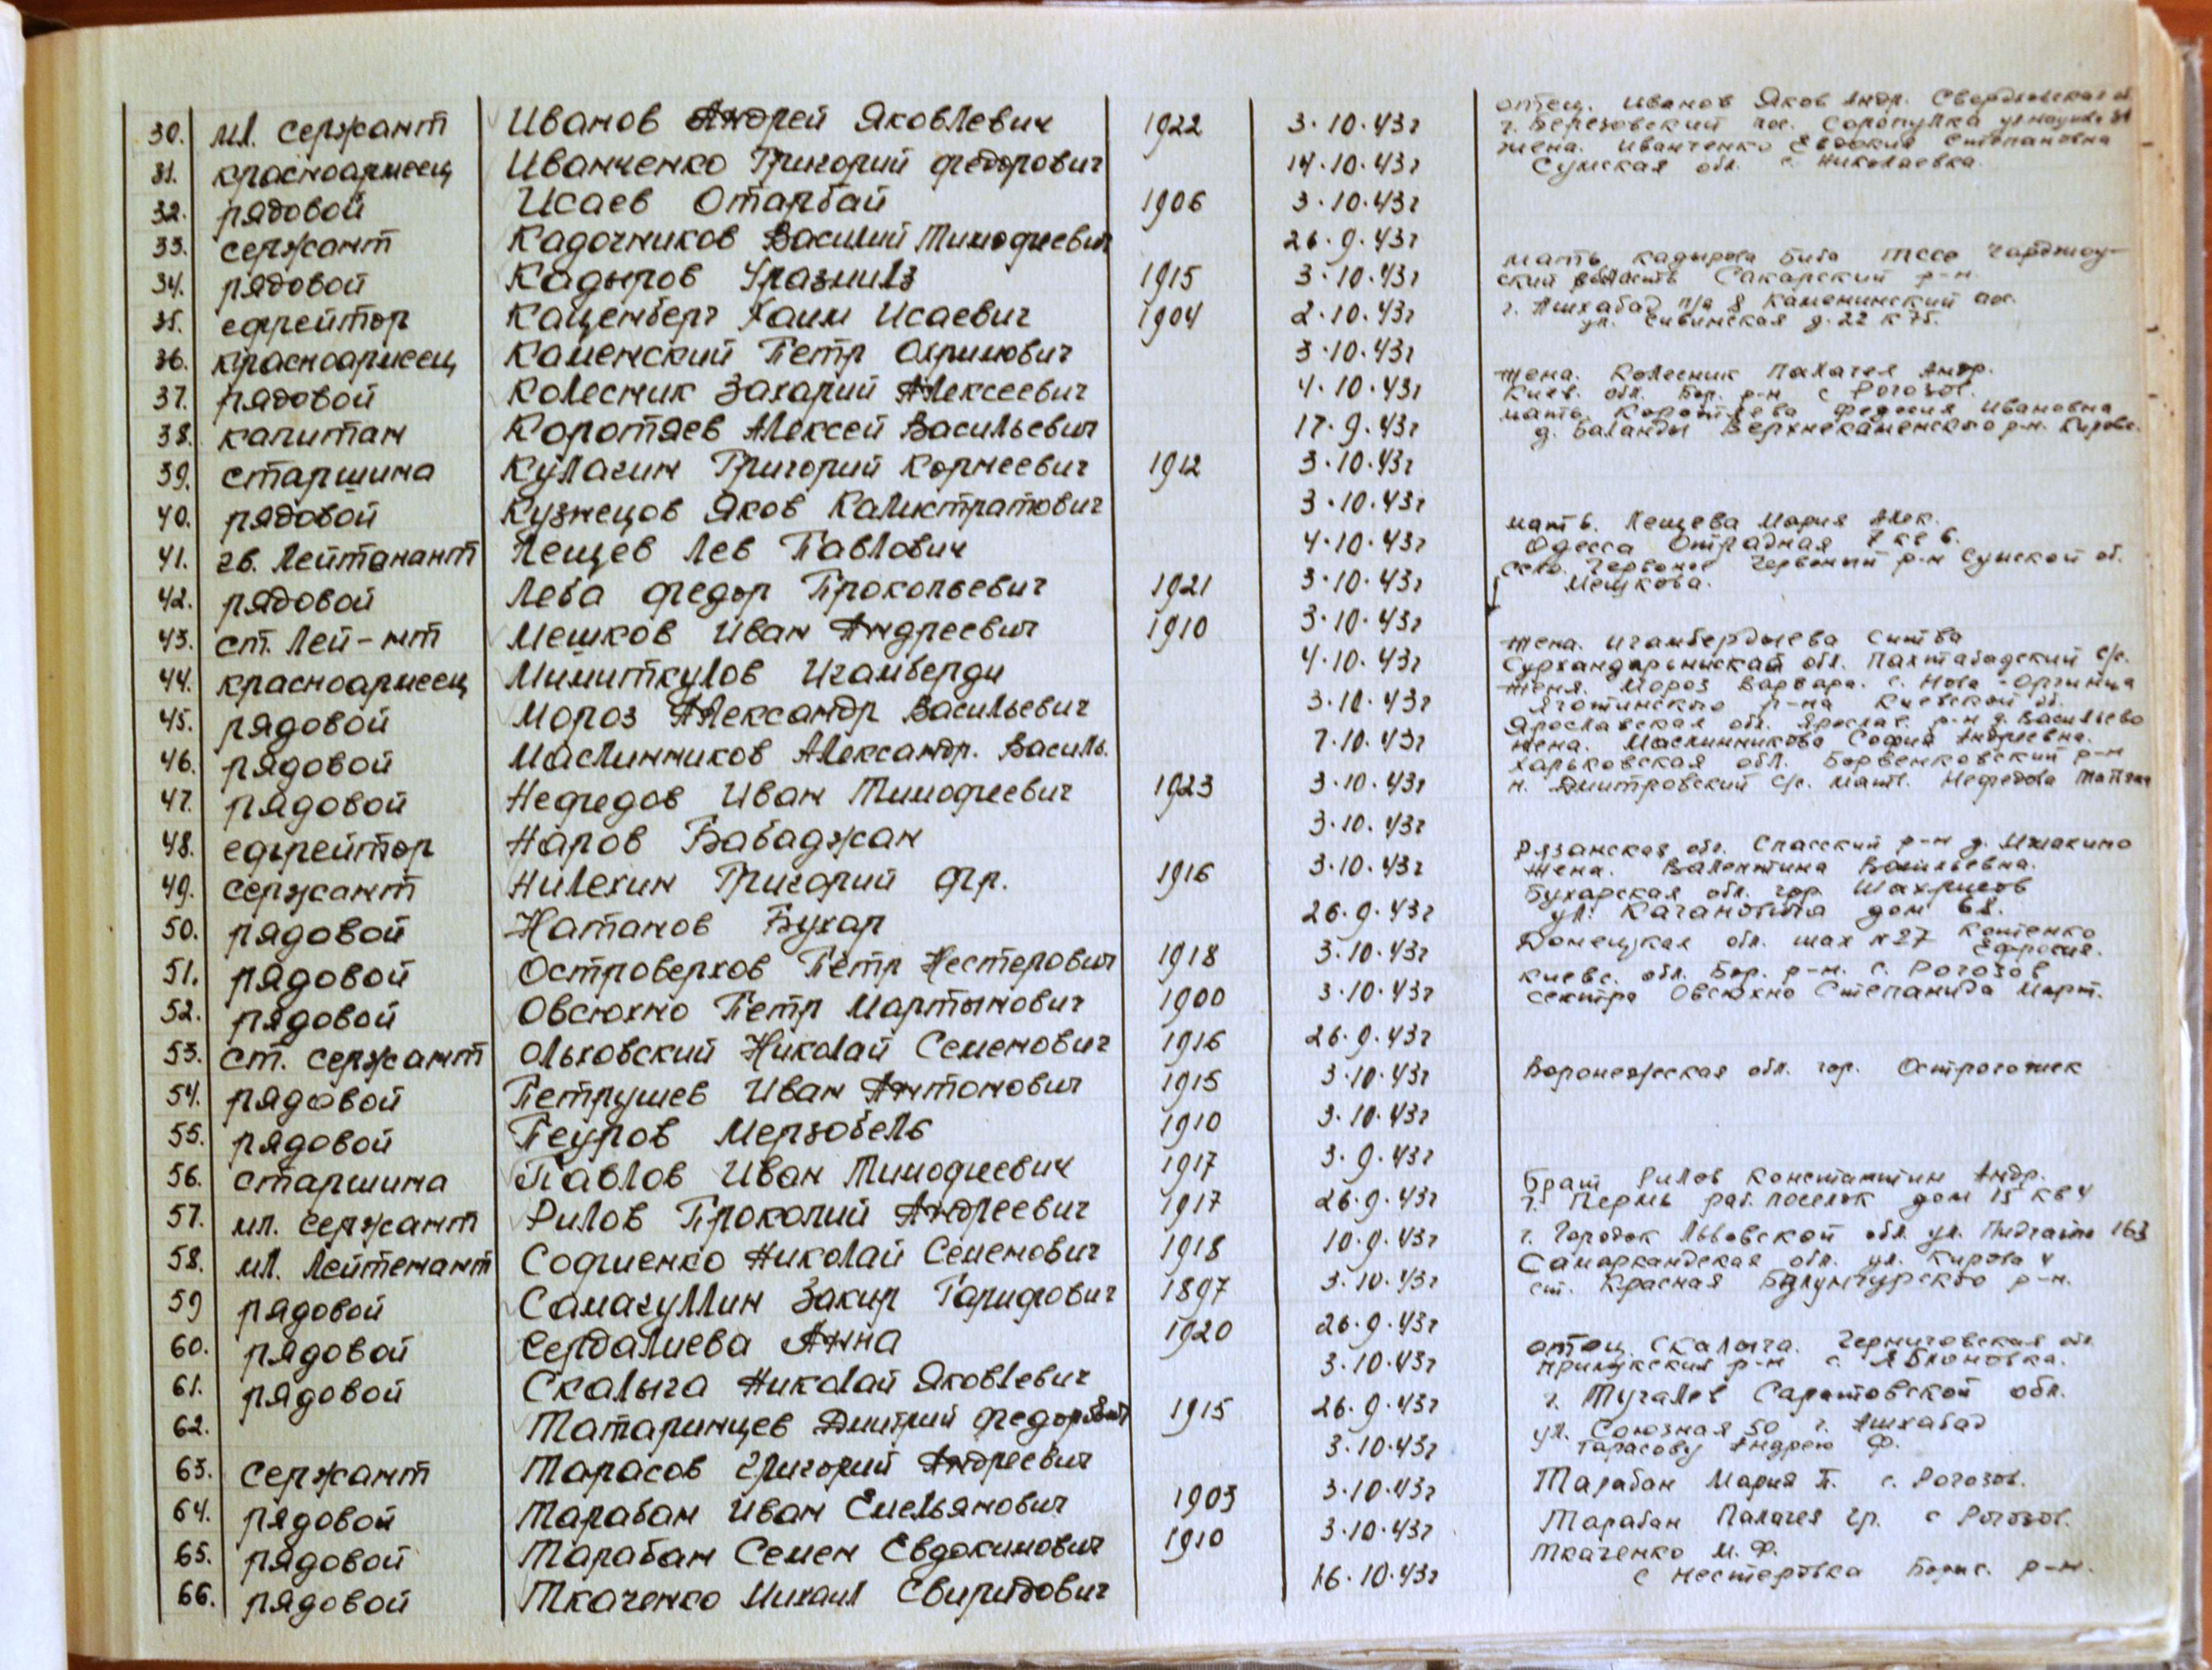 30. мл. сержант Иванов Андрей Яковлевич 1922 3.10.43г отец. Иванов Яков Андр. Свердловская об.
г. Березовский пос.
31. красноармеец Иванченко Григорий Федорович 14.10.43г жена. Иванченко Евдокия Степановна
Сумская обл. с. Николаевка.
32. рядовой Исаев Отарбай 1906 3.10.43г
33. сержант Кадочников Василий Тимофиевич 26.9.43г
34. рядовой Кадыров 1915 3.10.43г мать Кадырова Биба тссо чарджоу-
ский область Сакарский р-н
35. ефрейтор Каценберг Хаим Исаевич 1904 2.10.43г г. Ашхабад п/я 8 Каменинский пос.
ул. д. 22 к 75.
36. красноармеец Каменский Петр Охримович 3.10.43г
37. рядовой Колесник Захарий Алексеевич 4.10.43г жена. Колесник Палагея Андр.
Киев. обл. Бор. р-н с Рогозов.
38. капитан Коротяев Алексей Васильевич 17.9.43г мать. Коротяева Федосия Ивановна
д. Баланды Верхнекаменского р-н. Кировс.
39. старшина Кулагин Григорий Корнеевич 1912 3.10.43г
40. рядовой Кузнецов Яков Калистратович 3.10.43г
41. гв. Лейтанант Лещев Лев Павлович 4.10.43г мать. Лещева Мария Алек.
Одесса Отрадная 7 кв 6.
42. рядовой Леба Федор Прокопьевич 1921 3.10.43г село. Червоное Червоный р-н Сумской об.
Мешкова.
43. ст. Лей-нт Мешков Иван Андреевич 1910 3.10.43г
44. красноармеец Мимиткулов Игамберди 4.10.43г жена. Игамбердыева
Сурхандарьинская обл. Пахтабадский с/с.
45. рядовой Мороз Александр Васильевич 3.10.43г жена. Мороз Варвара. с. Нова-Оржица
Яготинского р-на Киевской об.
46. рядовой Маслинников Александр. Василь. 7.10.43г Ярославская обл. Ярослав. р-н д. Васильево
жена. Маслинникова София Андреевна.
47. рядовой Нефедов Иван Тимофиевич 1923 3.10.43г Харьковская обл. Борвенковский р-н
н. Дмитровский с/с. мать. Нефедова
48. ефрейтор Наров Бабаджан 3.10.43г
49. сержант Нилехин Григорий Фр. 1916 3.10.43г Рязанская обл. Спасский р-н д.
жена. Валентина Васильевна.
50. рядовой Натанов Бухар 26.9.43г Бухарская обл. гор.
ул. Кагановича дом 68.
51. рядовой Островерхов Петр Нестерович 1918 3.10.43г Донецкая обл. шах №27 Котенко
Ефросия.
52. рядовой Овсюхно Петр Мартынович 1900 3.10.43г Киевс. обл. Бор. р-н. с. Рогозов
сектра Овсюхно Степанида Март.
53. ст. сержант Ольховский Николай Семенович 1916 26.9.43г
54. рядовой Петрушев Иван Антонович 1915 3.10.43г Воронежская обл. гор. Острогожек
55. рядовой Пеуров Мерзобель 1910 3.10.43г
56. старшина Павлов Иван Тимофиевич 1917 3.9.43г
57. мл. сержант Рилов Прокопий Андреевич 1917 26.9.43г Брат Рилов Константин Андр.
г. Пермь раб. поселок дом 15 кв 4
58. мл. Лейтенант Софиенко Николай Семенович 1918 10.9.43г г. Городок Львовской обл. ул. 163
59 рядовой Самагуллин Закир Гарифович 1897 3.10.43г Самаркандская обл. ул. Кирова 4
ст. Красная р-н.
60. рядовой Сердалиева Анна 1920 26.9.43г
61. рядовой Скалыга Николай Яковлевич 3.10.43г отец Скалыга. Черниговская обл.
прилукский р-н с. Яблоновка.
62. Татаринцев Дмитрий Федорович 1915 26.9.43г г. Тугалев Саратовской обл.
63. сержант Тарасов Григорий Андреевич 3.10.43г ул. Союзная 50 г. Ашхабад
Тарасову Андрею Ф.
64. рядовой Тарабан Иван Емельянович 1903 3.10.43г Тарабан Мария П. с. Рогозов.
65. рядовой Тарабан Семен Евдокимович 1910 3.10.43г Тарабан Палагея гр. с Рогозов.
66. рядовой Ткаченко Михаил Свиридович 16.10.43г Ткаченко М. Ф.
с Нестеровка Борис. р-н.